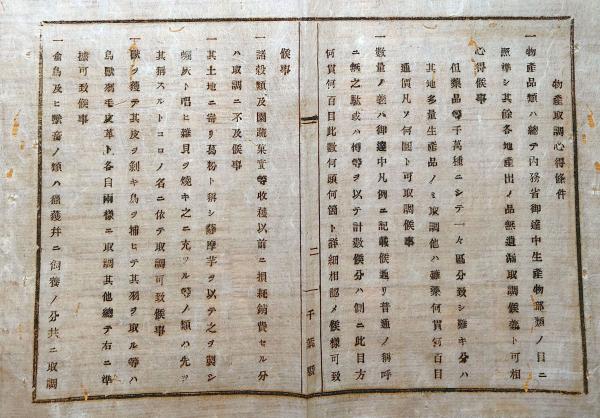 物產取調心得條件
一物產品類ハ總テ內務省御達中生產物部類ノ目ニ
照準シ其餘各地產出ノ品無遺漏取調候義ト可相
心得候事
但藥品等千萬種ニシテ一々區分致シ難キ分ハ
其地多量生產品ノミ取調他ハ雜藥何貫何百目
通價凡ソ何圓ト可取調候事
一數量ノ義ハ御達中凡例ニ記載候通リ普通ノ稱呼
ニ無之駄或ハ樽等ヲ以テ計數候分ハ割ニ此目方
何貫何百目此數何頭何箇ト詳細相認メ候樣可致
二
千葉縣
候事
一諸穀類及園蔬菓實等收穫以前ニ損耗銷費セル分
ハ取調ニ不及候事
一其土地ニ寄リ葛粉ト稱シ薩摩芋ヲ以テ之ヲ製シ
蠣灰ト唱ヒ雜貝ヲ燒キ之ニ充ツル等ノ類ハ先ツ
其稱スルトコロノ名ニ依テ取調可致候事
一獸ヲ獲テ其皮ヲ剝キ鳥ヲ捕ヒテ其羽ヲ取ル等ハ
鳥獸羽毛皮革ト各自兩樣ニ取調其他總テ右ニ準
據可致候事
一禽鳥及ヒ獸畜ノ類ハ獵獲幷ニ飼養ノ分共ニ取調